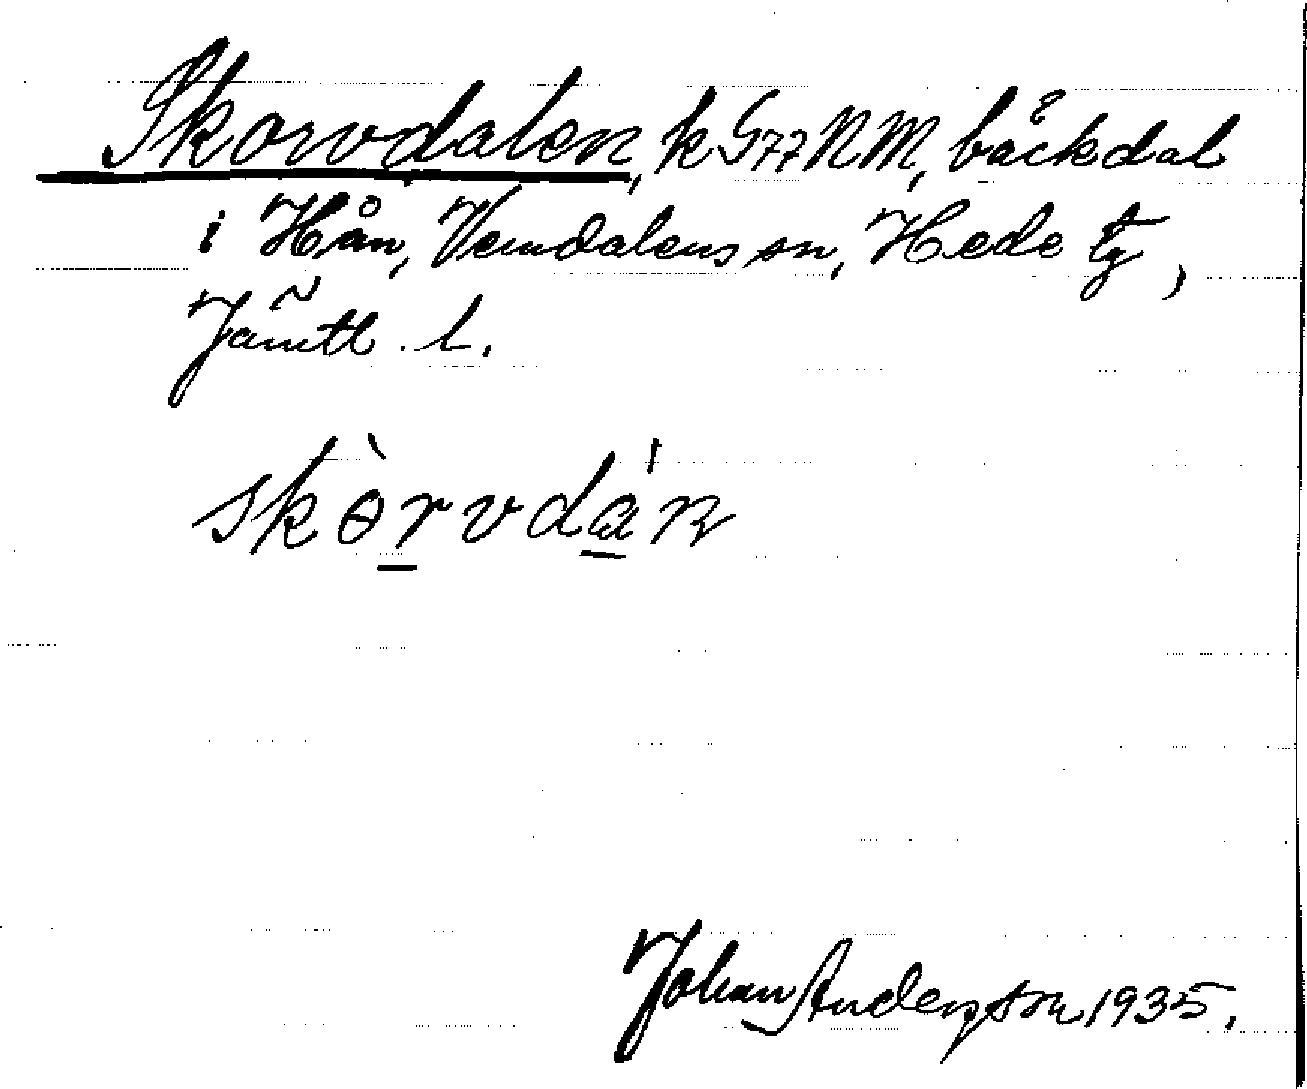 Skorvdalen, k G77NM, bäckdal
i Hån, Vemdalens sn, Hede tg,
Jämtl. l.
skòrvdán
Johan Anderson 1935.